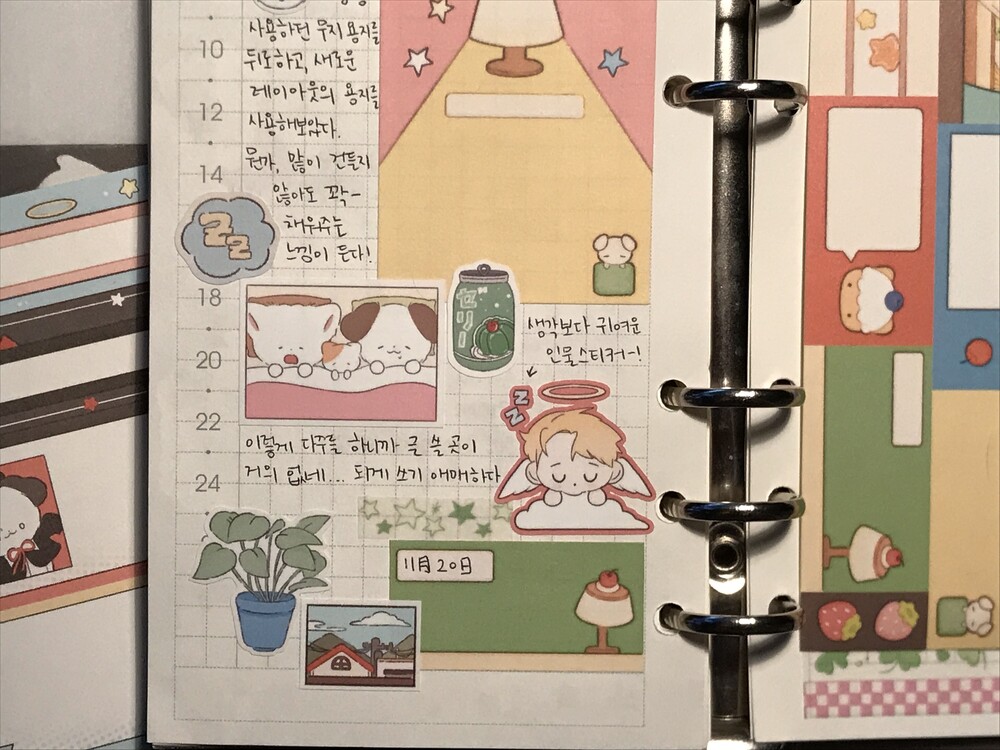 사용하던 무지 용지를
뒤로하고, 새로운
레이아웃의 용지를
사용해보았다.
뭔가, 많이 건들지
않아도 꽉-
채워주는
느낌이 든다!
10
12
14
18
20
22
24
zz
ゼリー
생각보다 귀여운
인물스티커~!
zz
이렇게 다꾸를 하니까 글 쓸 곳이
거의 없네... 되게 쓰기 애매하다
11月20日